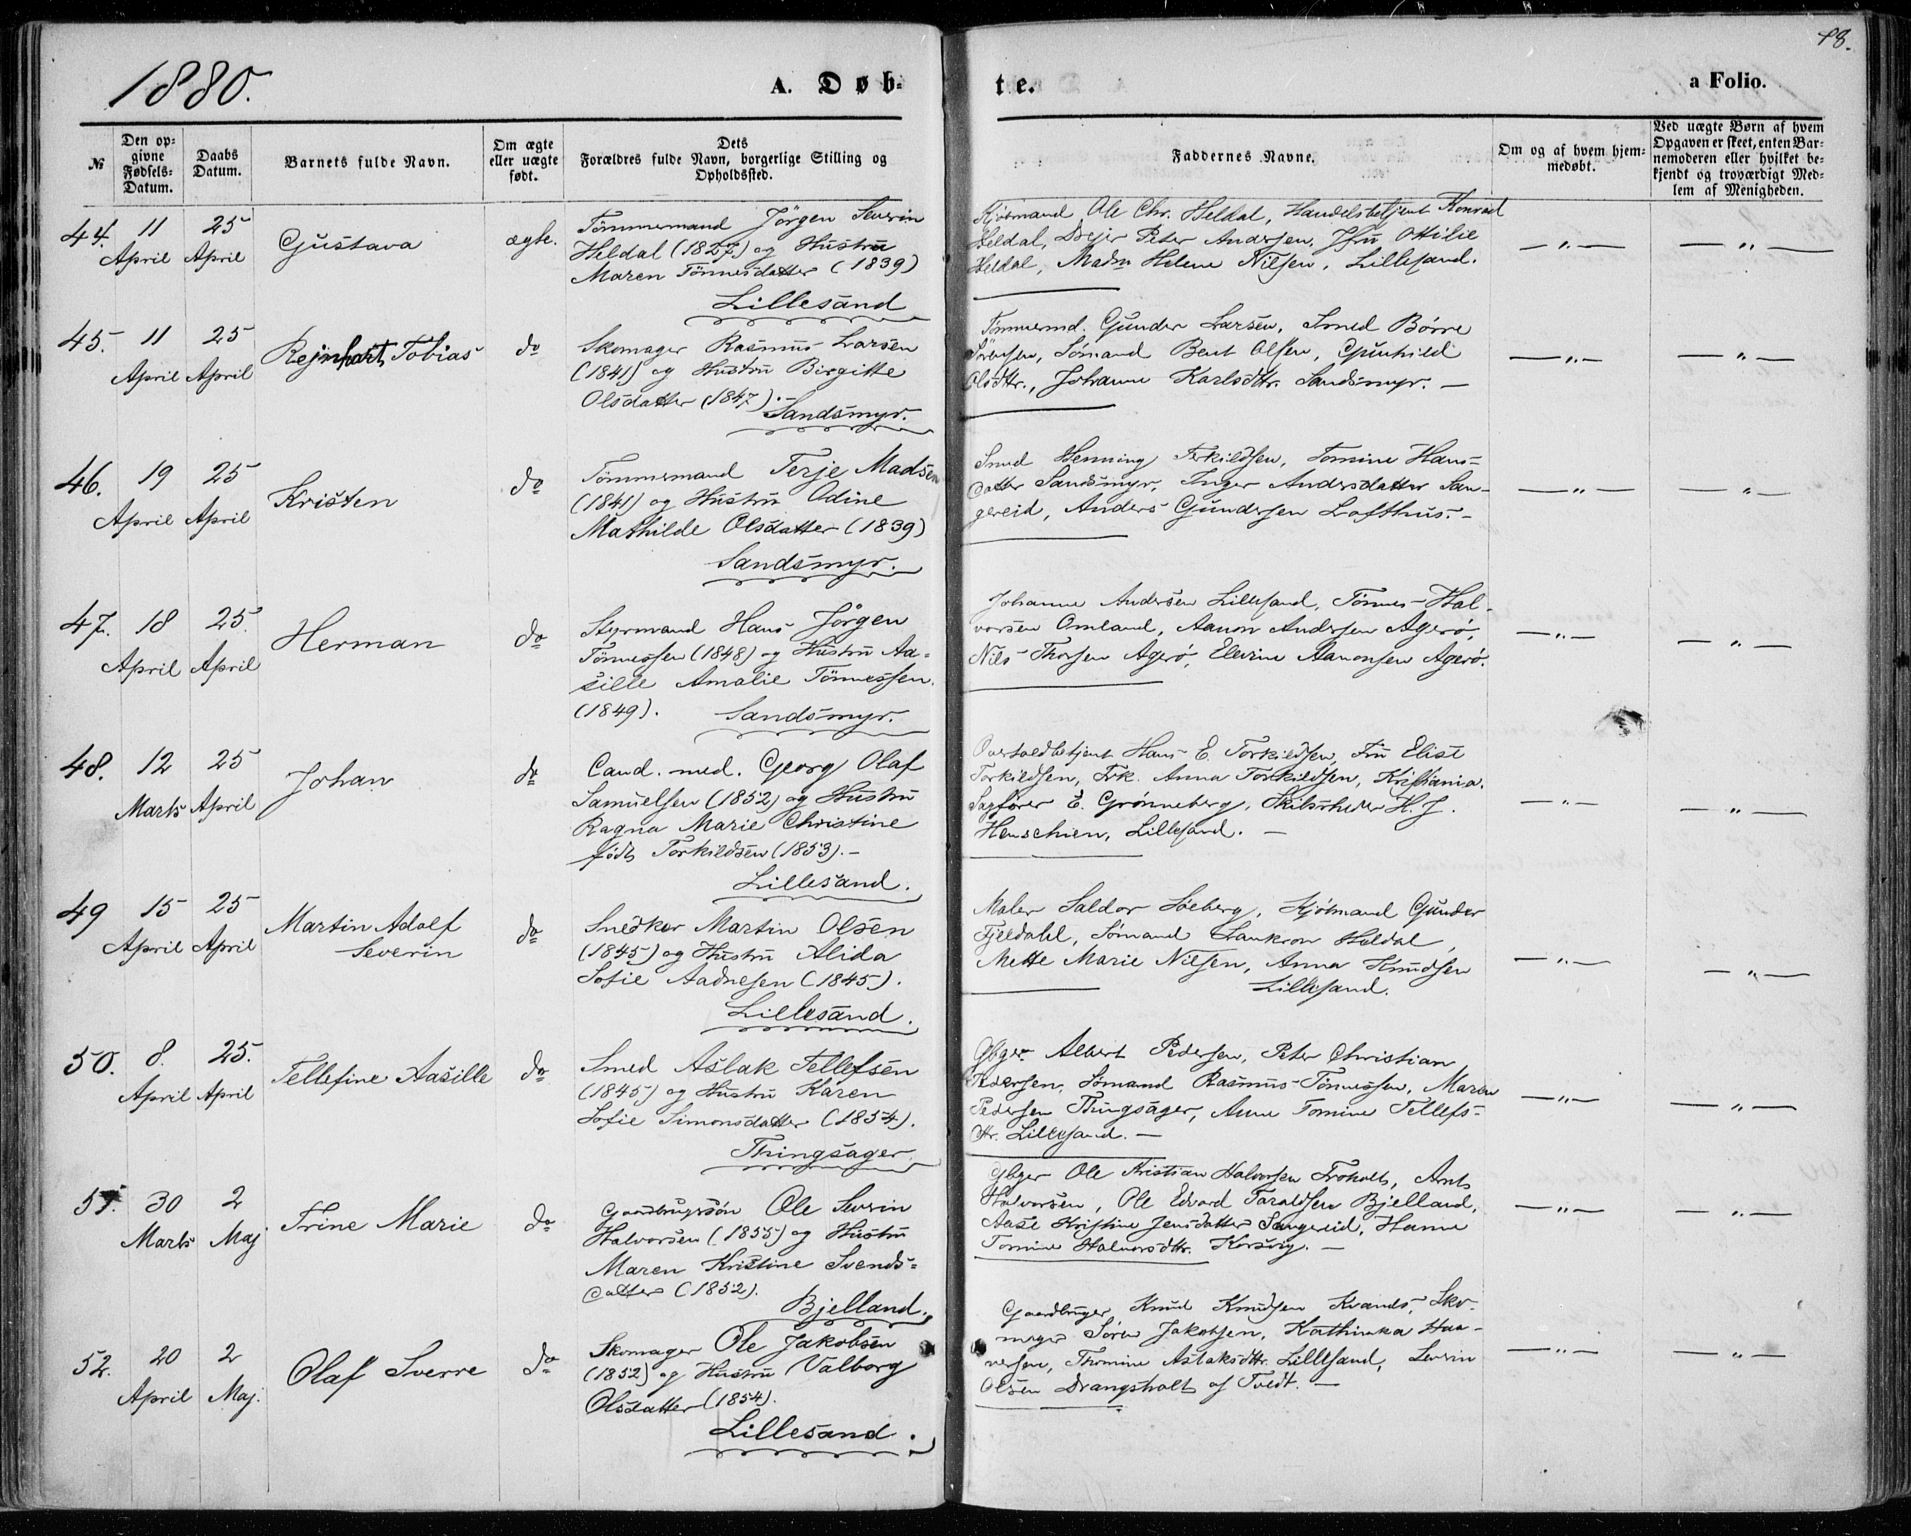 1880.
A. Døb-
te.
a Folio.
48.
№
Den op-
givne
Fødsels-
Datum.
Daabs
Datum.
Barnets fulde Navn.
Om ægte
eller uægte
født.
Dets
Forældres fulde Navn, borgerlige Stilling og
Opholdssted.
Faddernes Navne.
Om og af hvem hjem-
medøbt.
Ved uægte Børn af hvem
Opgaven er skeet, enten Bar-
nemoderen eller hvilket be-
kjendt og troværdigt Med-
lem af Menigheden.
44. 11 April 25 April Gustava ægte.
Tømmermand Jörgen Severin
Heldal (1827) og Hustru
Maren Tönnesdatter (1839)
Lillesand
Kjöbmand Ole Chr. Heldal, Handelsbetjent Konrad
Heldal, Drejer Peter Andersen, Jfru Ottilie
Heldal, Madm Helene Nilsen, Lillesand.
— " — — " —
45. 11 April 25 April Rejnhart Tobias do
Skomager Rasmus Larsen
(1841) og Hustru Birgitte
Olsdatter (1847).
Sandsmyr.
Tömmermd. Gunder Larsen, Smed Börre
Sörensen, Sömand Bent Olsen, Gunhild
Olsdtr., Johanne Karlsdtr. Sandsmyr. —
— " — — " —
46. 19 April 25 April Kristen do
Tömmermand Terje Madsen
(1841) og Hustru Odine
Mathilde Olsdatter (1839)
Sandsmyr.
Smed Henning Terkildsen, Tomine Hans-
datter Sandsmyr, Inger Andersdatter San-
gereid, Anders Gundersen Lofthus. -
— " — — " —
47. 18 April 25 April Herman do
Styrmand Hans Jörgen
Tönnessen (1848) og Hustru Aa-
sille Amalie Tönnessen.
(1849). Sandsmyr.
Johanne Andersen Lillesand, Tönnes Hal-
vorsen Omland, Aanon Andersen Agerö,
Nils Thorsen Agerö, Elevine Aanonsen Agerö.
— " — — " —
48. 12 Marts 25 April Johan do
Cand. med. Georg Olaf
Samuelsen (1852) og Hustru
Ragna Marie Christine
født Torkildsen (1853). —
Lillesand.
Overtoldbetjent Hans E. Torkildsen, Fru Elise
Torkildsen, Frk. Anna Torkildsen, Kristiania.
Sagförer E. Grönneberg, Skibsrheder H. J.
Henschien, Lillesand. —
— " — — " —
49 15 April 25 April Martin Adolf
Severin do
Snedker Martin Olsen
(1845) og Hustru Alida
Sofie Aadnesen (1845).
Lillesand.
Maler Saldor Söeberg, Kjöbmand Gunder
Fjeldahl, Sömand Heldal,
Mette Marie Nilsen, Anna Knudsen
Lillesand.
— " — — " —
50. 8. April 25. April Tellefine Aasille do
Smed Aslak Tellefsen
(1845) og Hustru Karen
Sofie Simonsdatter (1854).
Thingsager
Gbger Albert Pedersen, Peter Christian
Pedersen, Sömand Rasmus Tönnessen, Maren
Pedersen Thingsager, Anne Tomine Tellefs-
dtr. Lillesand. —
— " — — " —
51. 30 Marts 2 Maj Trine Marie do
Gaardbrugersön Ole Severin
Halvorsen (1855) og Hustru
Maren Kristine Svends-
datter (1852).
Bjelland.
Gbger Ole Kristian Halvorsen Froholt, Arnt
Halvorsen, Ole Edvard Taraldsen Bjelland,
Aase Kristine Jensdatter Sangereid, Hanne
Tomine Halvorsdtr. Korsvig. —
— " — — " —
52. 20 April 2 Maj. Olaf Sverre do
Skomager Ole Jakobsen
(1852) og Hustru Valborg
Olsdatter (1854).
Lillesand.
Gaardbruger Knud Knudsen Kvands, Sko-
mager Sören Jakobsen, Kathinka Haa-
versen, Thomine Aslaksdtr. Lillesand, Severin
Olsen Drangsholt af Tvedt. —
— " — — " —